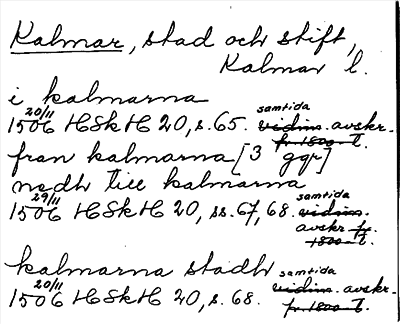 Kalmar, stad och stift,
Kalmar l.
i kalmarna
20/11
samtida
1506 HSkH 20, s. 65. vidim. avskr.
fr. 1800-t.
fran kalmarna [3 ggr]
nedh till kalmarna
29/11
samtida
1506 HSkH 20, ss. 67, 68. vidim.
avskr. fr.
1800-t.
kalmarna stadh
20/11
samtida
1506 HSkH 20, s. 68. vidim. avskr.
fr. 1800-t.